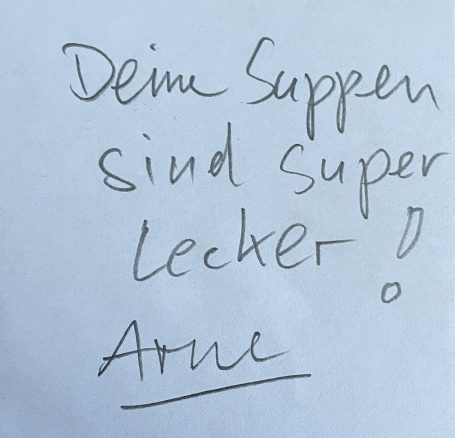 Deine Suppen
sind super
lecker!
Arne